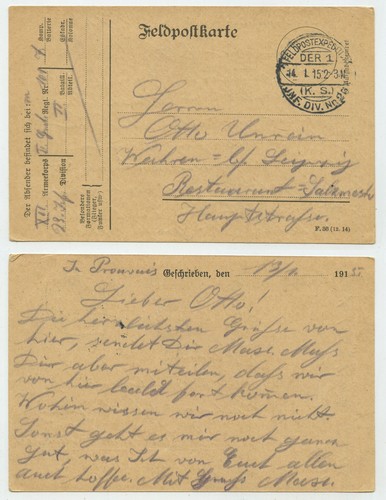 Feldpostkarte
Der Absender befindet sich bei
XII. Armeekorps
23. Inf. Division
Regt. Nr.
Bataill.
Abteil.
Komp.
Batterie
Eskadr.
Kolonne
Besondere
Formationen
(Flieger,
Funker usw.)
FELDPOSTEXPEDITION
DER 1.
14. 1. 15
(K. S.)
INF. DIV. Nr. 23
Herrn
Otto
Wahren b/ Leipzig
Restaurant
Hauptstrasse.
F. 50 (12. 14)
In Prouvais Geschrieben, den 13/1. 191 5.
Lieber Otto!
Die herzlichsten Grüsse von
hier, sendet Dir Muss
Dir aber mitteilen, dass wir
von hier bald fort kommen.
Wohin wissen wir noch nicht.
Sonst geht es mir noch ganz
gut, was Ich von Euch allen
auch hoffe. Mit Gruß